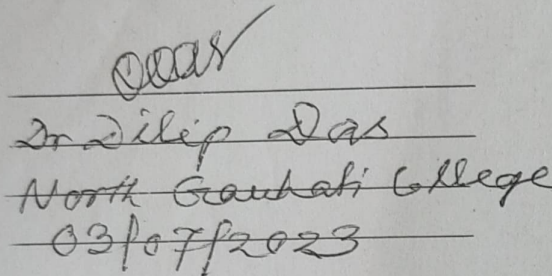 Dr Dilip Das
North Gauhati College
03/07/2023